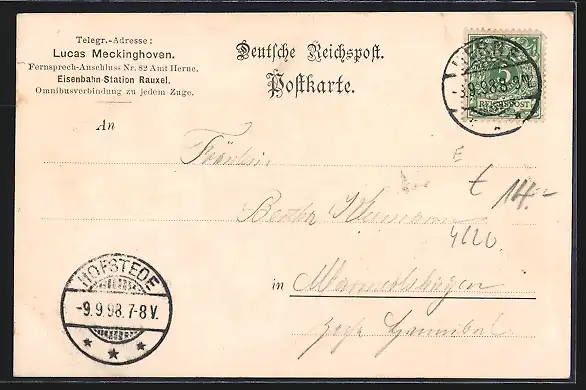 Telegr.-Adresse:
Lucas Meckinghoven.
Fernsprech-Anschluss Nr. 82 Amt Herne.
Eisenbahn-Station Rauxel.
Omnibusverbindung zu jedem Zuge.
Deutsche Reichspost.
Postkarte.
HERNE
8-9N.
REICHSPOST
An
Fräulein
Bertha
14.-
4620
in
HOFSTEDE
-9.9.98.7-8V.